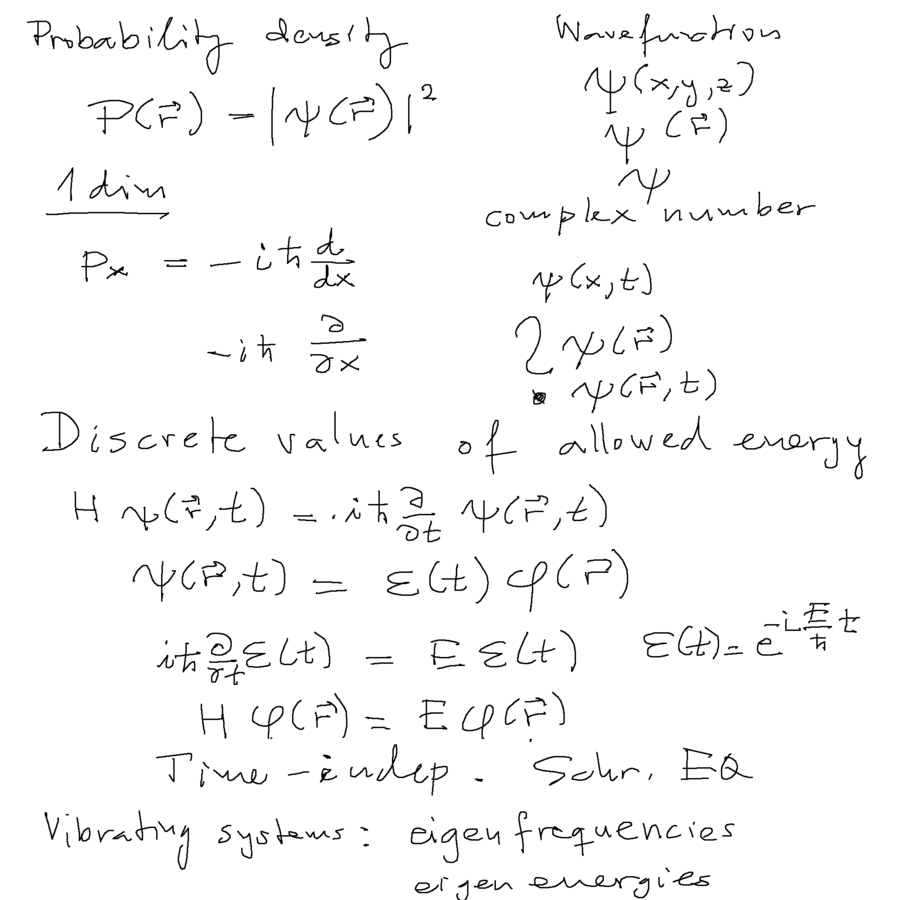 Probability density
P(r⃗) = |ψ(r⃗)|²
Wavefunction
ψ(x,y,z)
ψ(r⃗)
ψ
complex number
1 dim
Px = -iħ d/dx
-iħ ∂/∂x
ψ(x,t)
ψ(r⃗)
ψ(r⃗,t)
Discrete values of allowed energy
H ψ(r⃗,t) = iħ ∂/∂t ψ(r⃗,t)
ψ(r⃗,t) = ε(t) φ(r⃗)
iħ ∂/∂t ε(t) = E ε(t)   ε(t) = e^{-i E/ħ t}
H φ(r⃗) = E φ(r⃗)
Time-indep. Schr. EQ
Vibrating systems: eigen frequencies
eigen energies